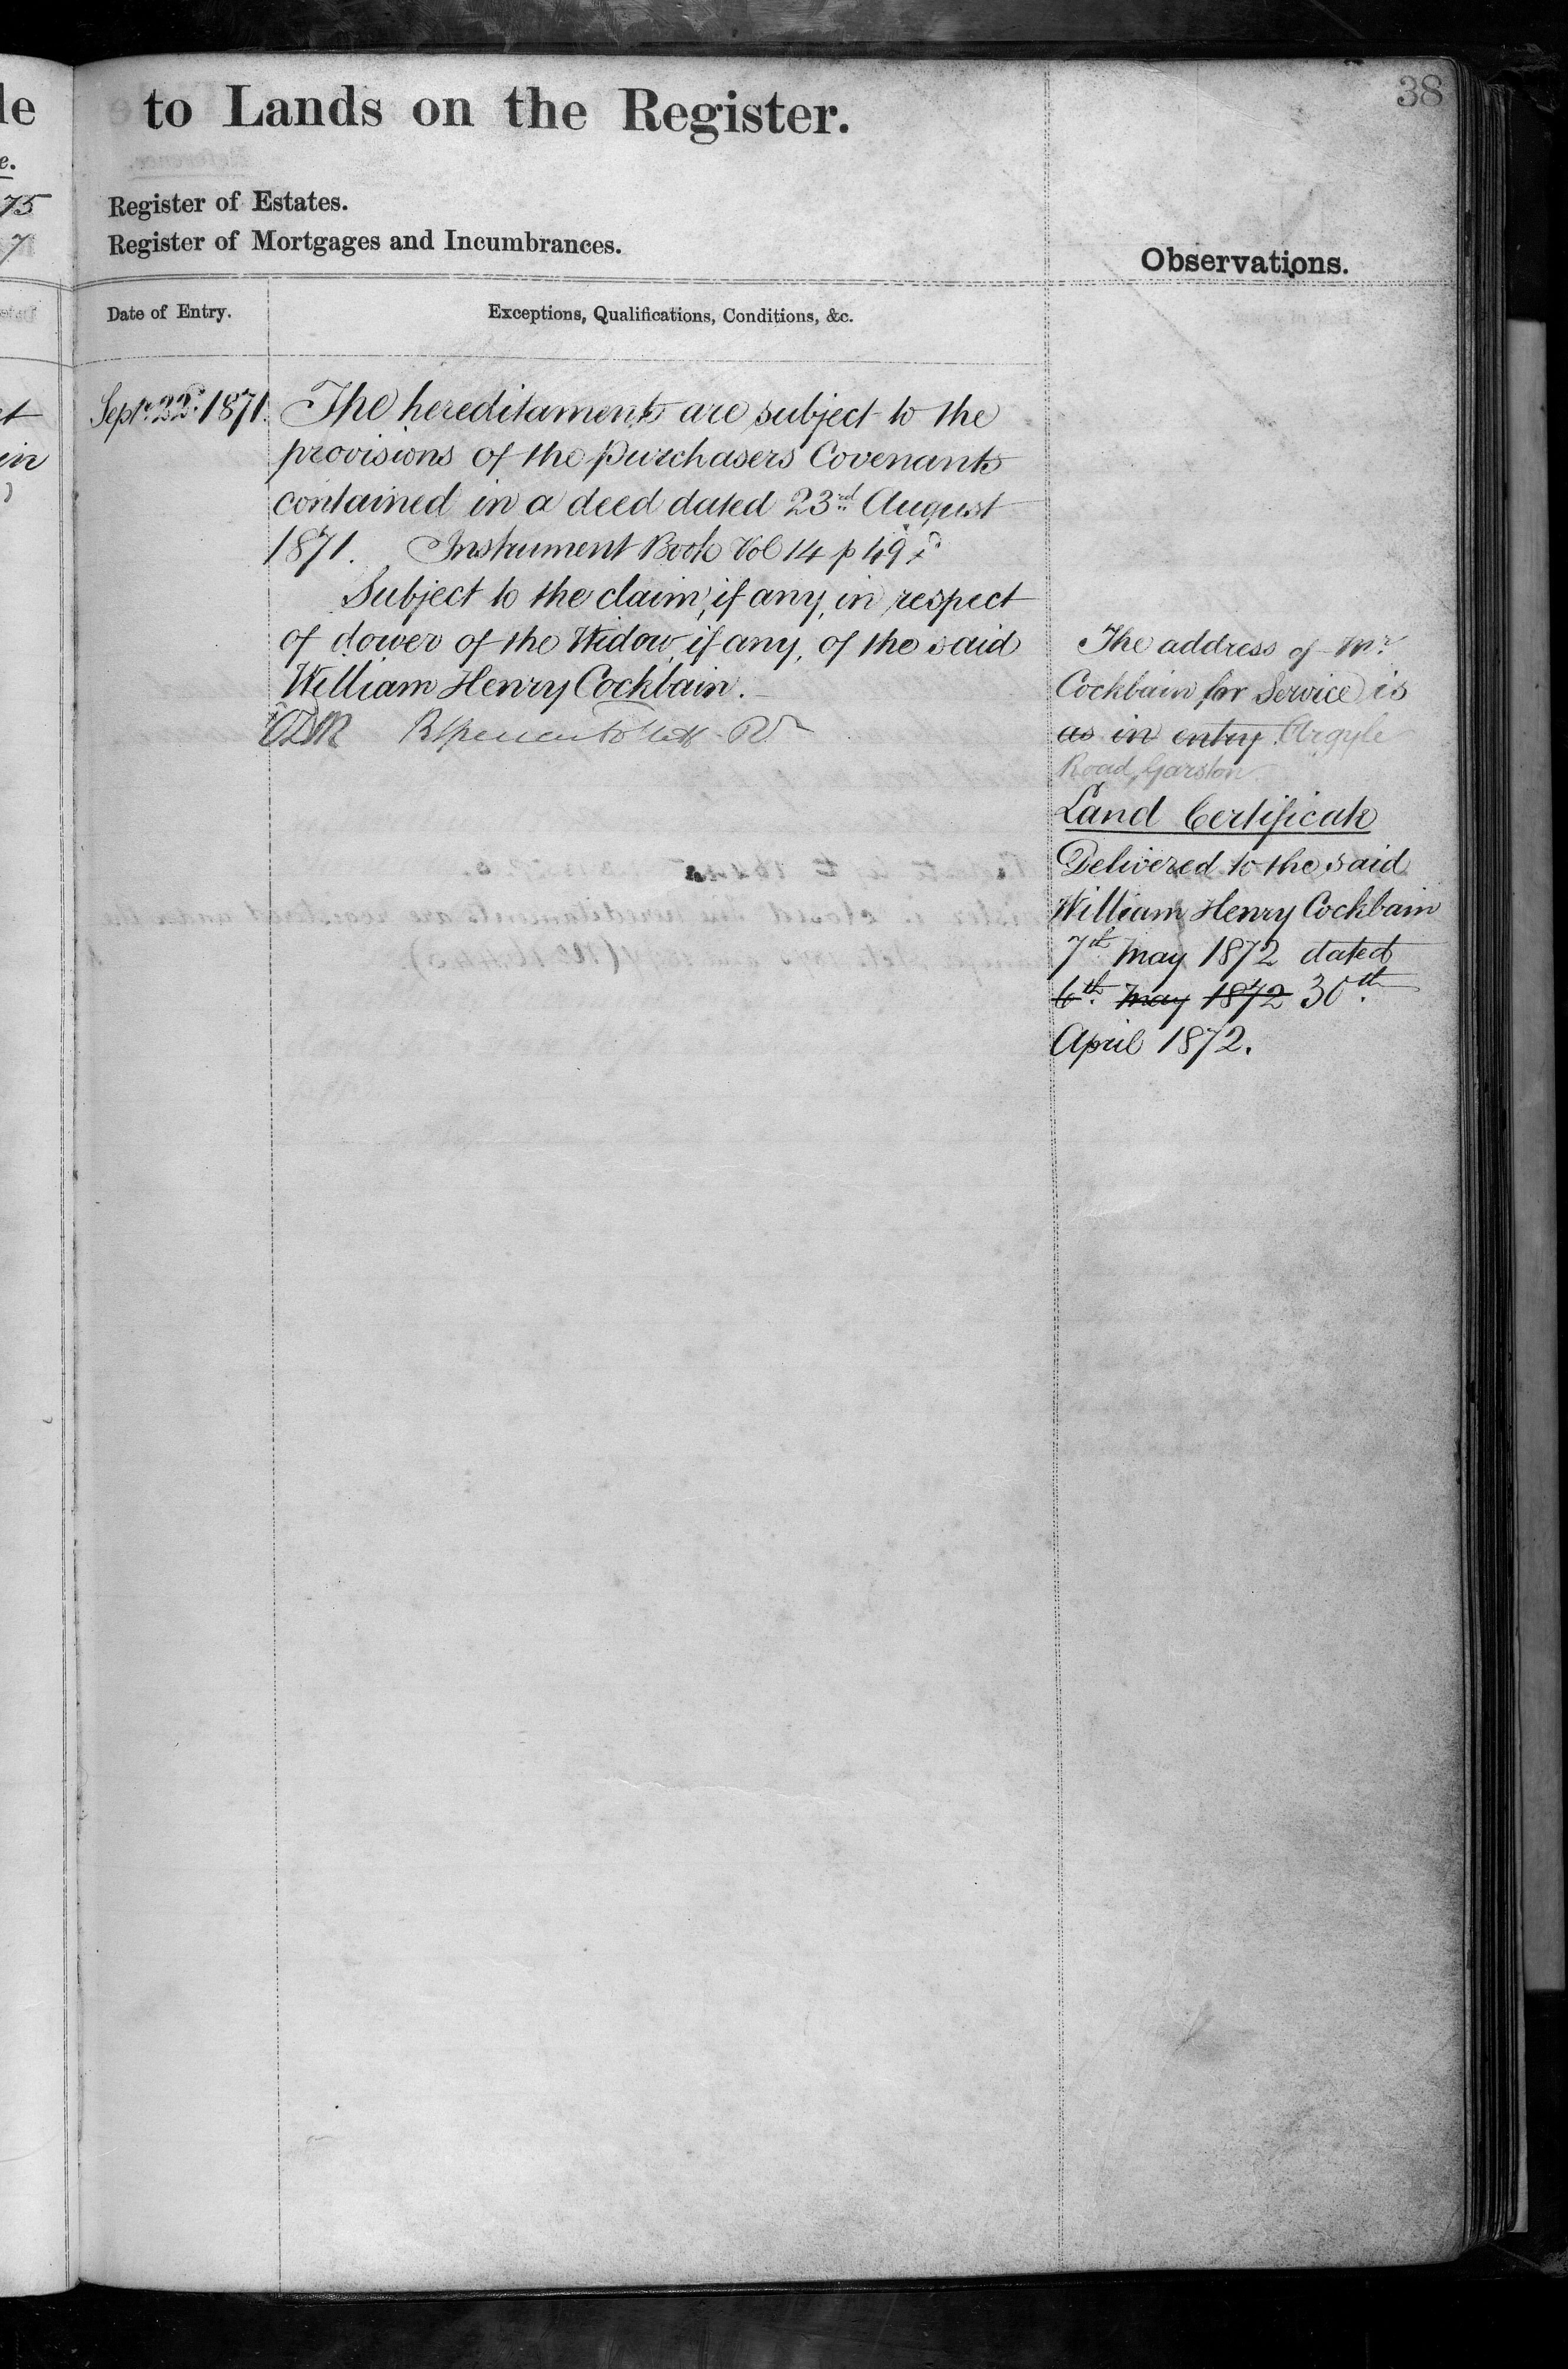 38
to Lands on the Register.
Register of Estates.
Register of Mortgages and Incumbrances.
Observations.
Date of Entry.
Exceptions, Qualifications, Conditions, &c.
Septr. 22d. 1871.
The hereditaments are subject to the
provisions of the purchasers Covenants
contained in a deed dated 23rd August
1871. Instrument Book Vol 14 p 49
Subject to the claim, if any, in respect
of dower of the Widow, if any, of the said
William Henry Cockbain.
The address of Mr.
Cockbain for Service is
as in entry. Argyle
Road, Garston
Land Certificate
Delivered to the said
William Henry Cockbain
7th May 1872 dated
6th. May 1872 30th.
April 1872.